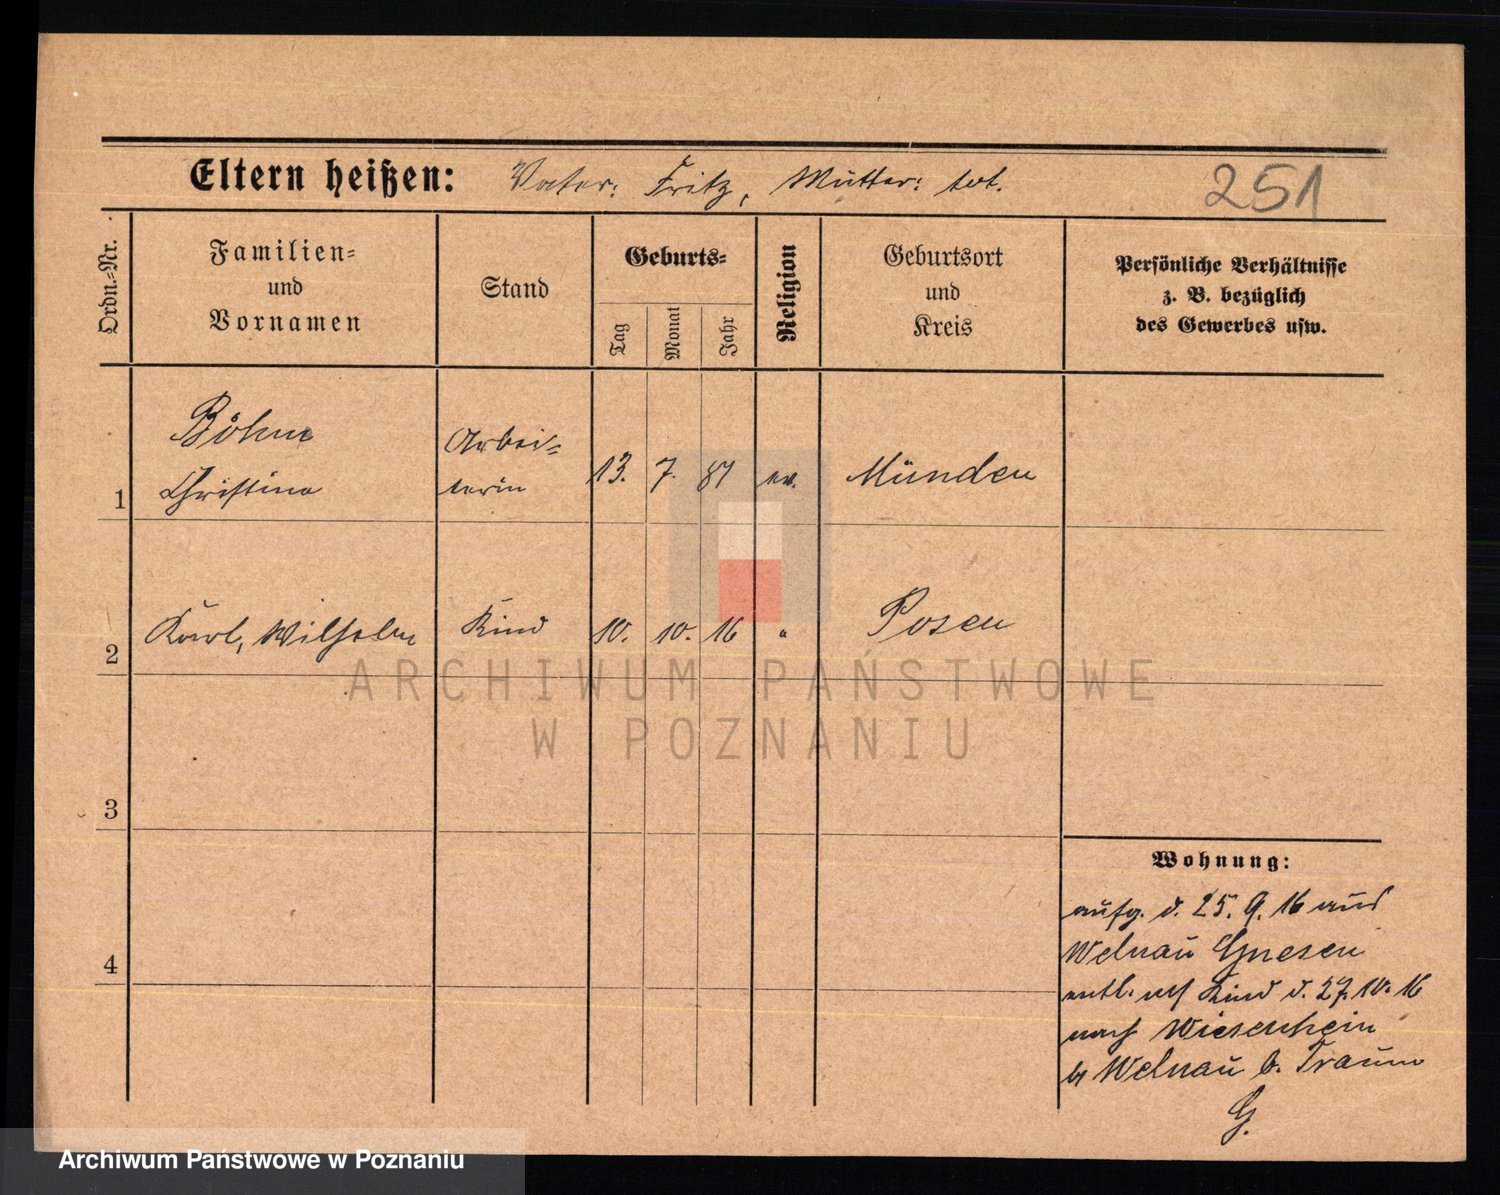 Eltern heißen: Vater: Fritz, Mutter: tot.
251
Ordn.-Nr.
Familien-
und
Vornamen
Stand
Geburts-
Tag
Monat
Jahr
Religion
Geburtsort
und
Kreis
Persönliche Verhältnisse
z. B. bezüglich
des Gewerbes usw.
1
Böhm
Christine
Arbei-
terin
13. 7. 87
ev.
Münden
2
Karl, Wilhelm
Kind
10. 10. 16
"
Posen
3
4
Wohnung:
aufg. d. 25. 9. 16 aus
Welnau Gnesen
entl. Kind d. 27. 10. 16
nach Wiesenhein
b Welnau b. Traum
G.
ARCHIWUM PAŃSTWOWE
W POZNANIU
Archiwum Państwowe w Poznaniu